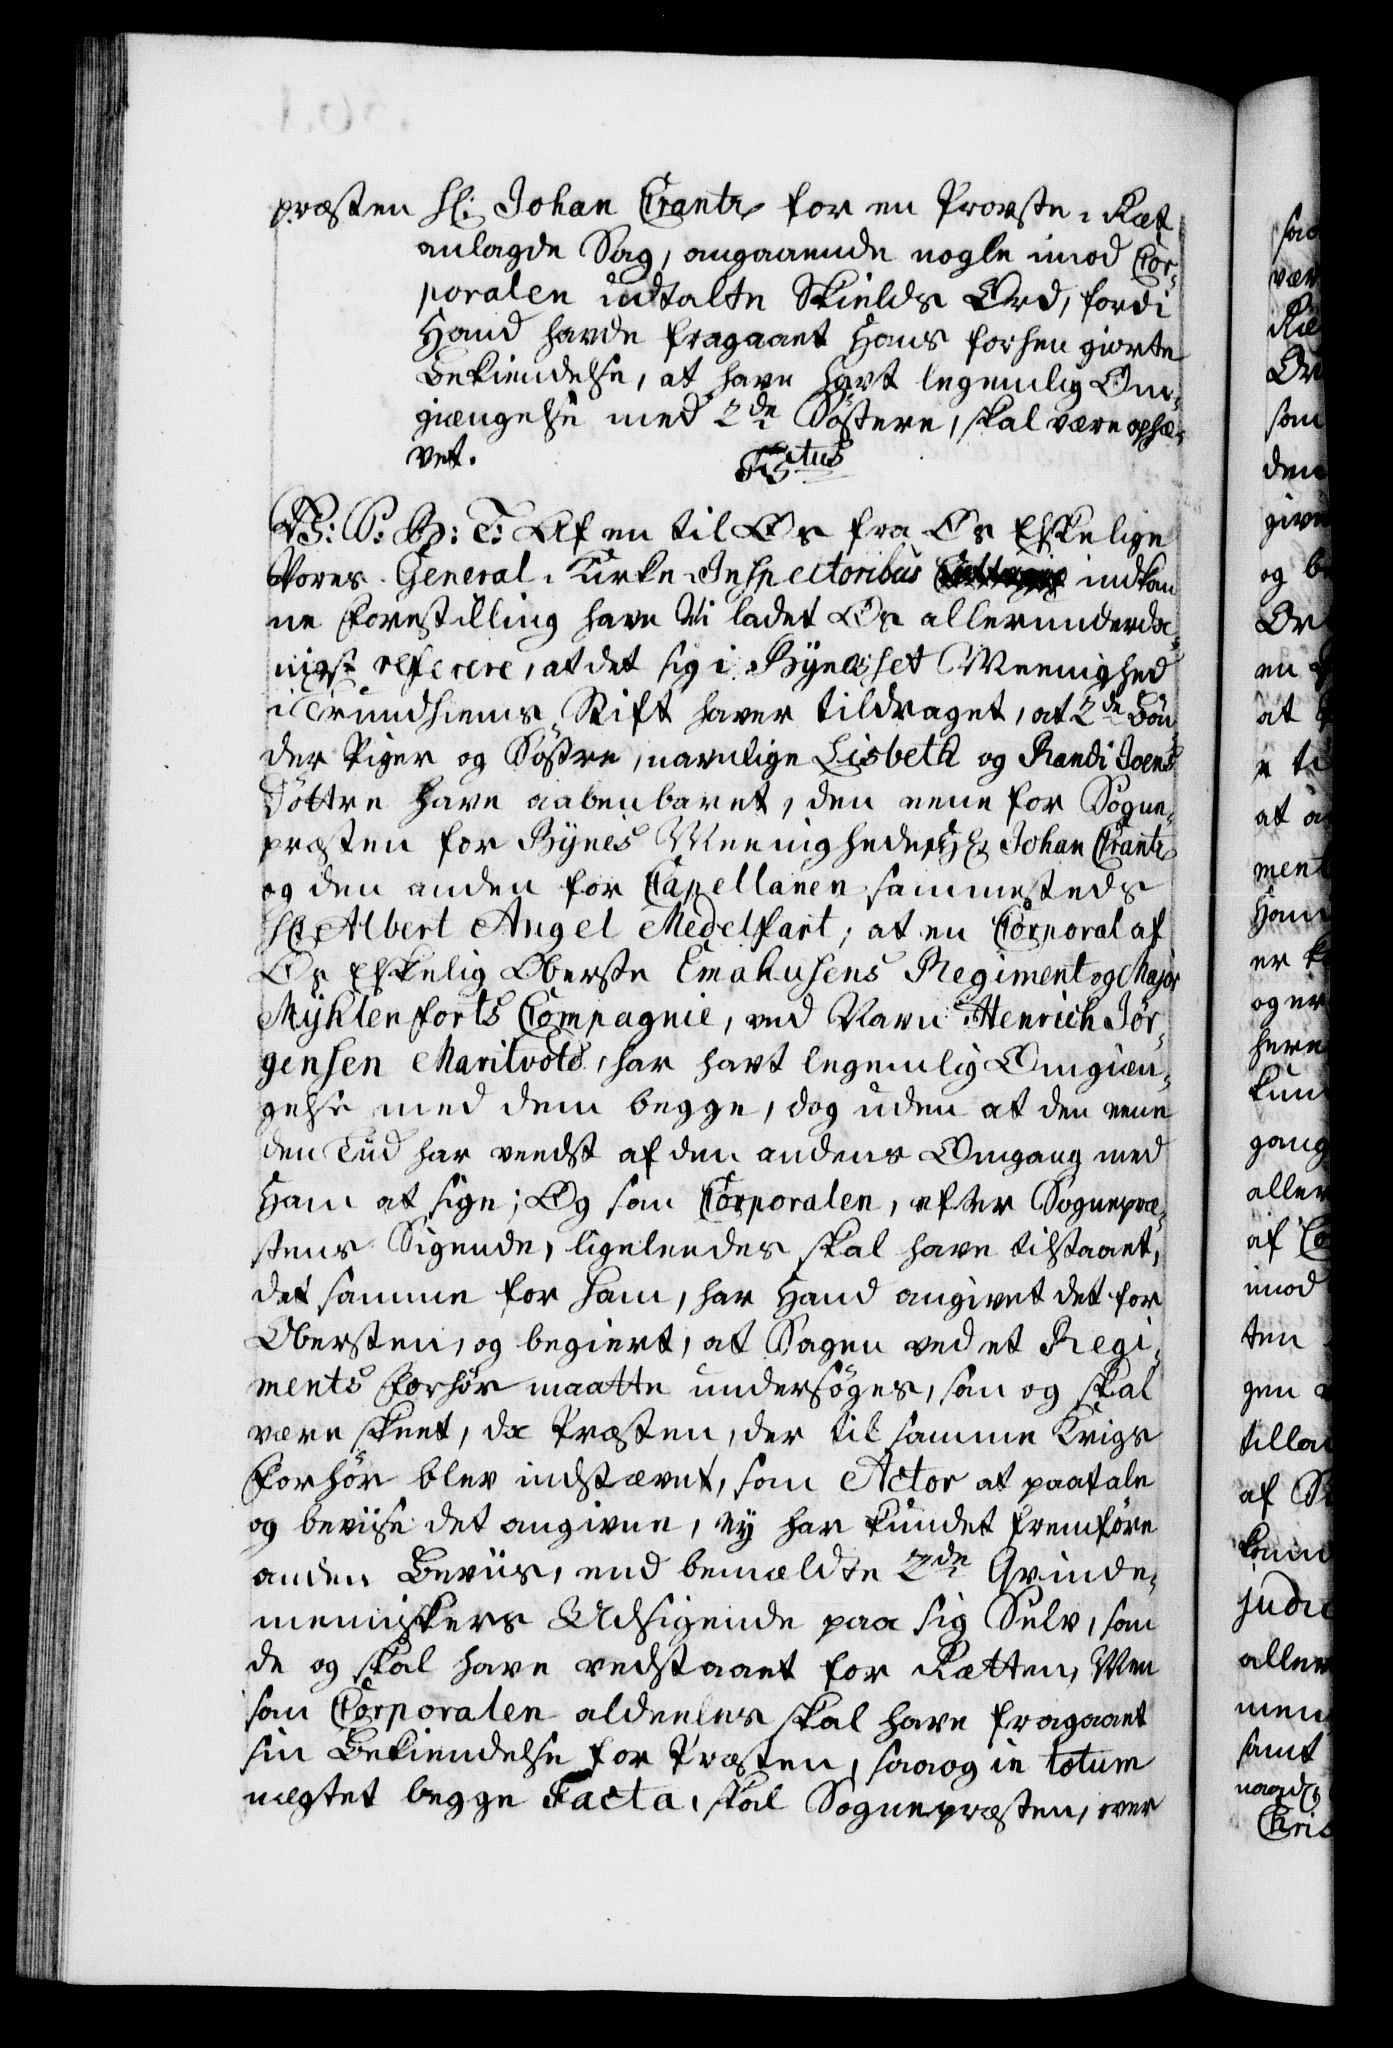 præsten Hr: Johan Crantz for en Provste-Ræt
anlagde Sag, angaaende nogle imod Cor-
poralen udtalte Skields Ord, fordi
Hand havde fragaaet Hans forhen giorte
Bekiendelse, at have havt legemlig Om-
giængelse med 2de Söstere, skal være ophæ-
vet.
C: 6tus
V: S: G: T: Af en til Os fra Os Elskelige
Vores General-Kirke-Inspectoribus indkom
ne Forestilling have Vi ladet Os allerunderda-
nigst referere, at det sig i Bÿnesset Meenighed
i Trundhiems Stift haver tildraget, at 2de Bön-
der Piger og Söstre, navnlige Lisbeth og Randi Joens
Döttre have aabenbaret, den eene for Sogne-
præsten for Bÿnes Meenigheder, Hr: Johan Crantz
og den anden for Capellanen sammesteds
Hr: Albert Angel Medelfart, at en Corporal af
Os Elskelig Oberste Emahusens Regiment og Major
Mÿhlenforts Compagnie, ved Navn Henrich Jör-
gensen Maritvold, har havt legemlig Omgiæn-
gelse med dem begge, dog uden at den eene
den Tiid har veedst af den andens Omgang med
Ham at sige; Og som Corporalen, efter Sognepræ-
stens Sigende, ligeleedes skal have tilstaaet,
det samme for ham, har Hand angivet det for
Obersten, og begiert, at Sagen ved et Regi-
ments Forhör maatte undersöges, som og skal
være skeet, da Præsten, der til samme Krigs
Forhör blev indstævnt, som Actor at paatale
og beviise det angivne, ey har kundet fremföre
anden Beviis, end bemældte 2de Qvinde-
menniskers Udsigende paa sig Selv, som
de og skal have vedstaaet for Rætten, Men
som Corporalen aldeeles skal have fragaaet
sin Bekiendelse for Præsten, saa og in totum
nægtet begge Facta, skal Sognepræsten, over